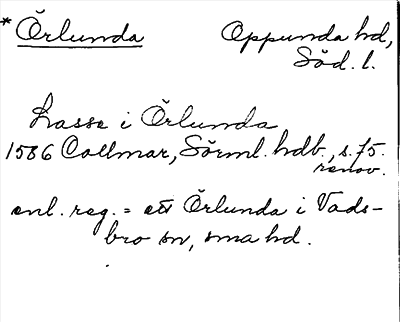 * Örlunda Oppunda hd,
Söd. l.
Lasse i Örlunda
1586 Collmar, Sörml. hdb., s. 75.
renov.
enl. reg. = ett Örlunda i Vads-
bro sn, sma hd.